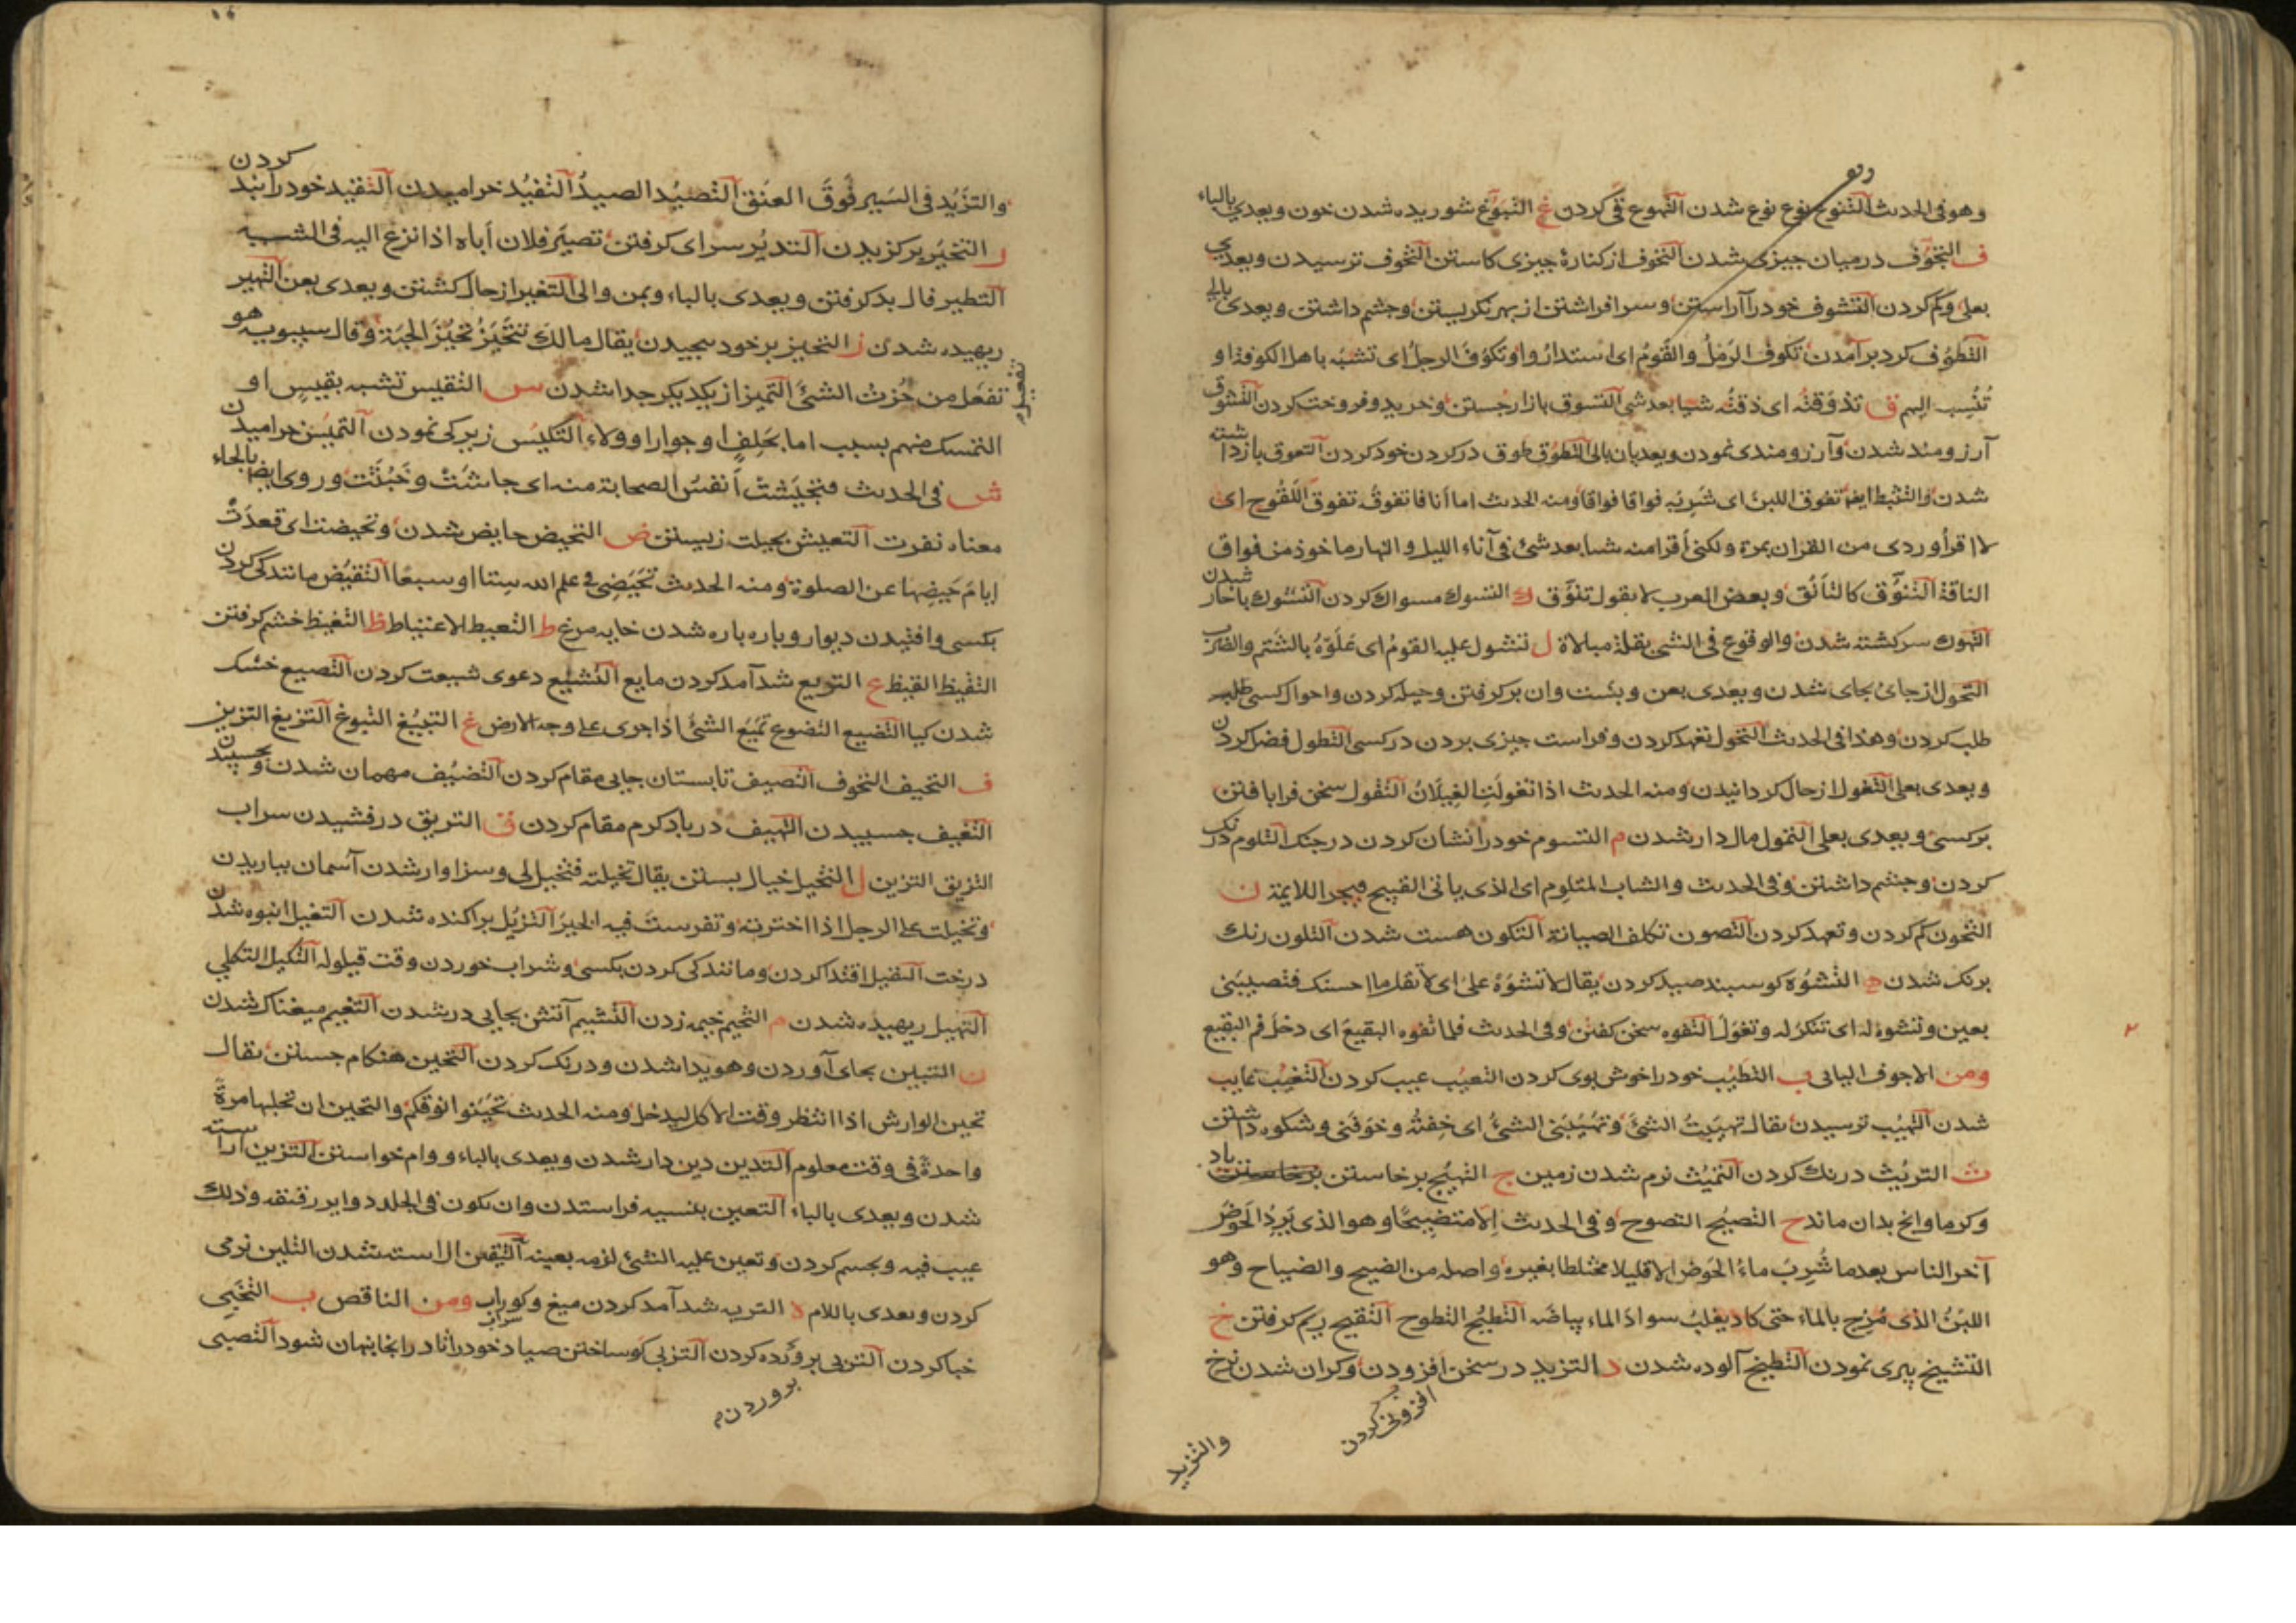 وهو فى الحديث التنوع نوع نوع شدن التهوع قى كردن غ التبوغ شوريده شدن خون ويعدى بالباء
ف التجوف درميان چيزى شدن التخوف از كناره چيزى كاستن التخوف ترسيدن ويعدى
بعلى وكم كردن التشوف خود را آراستن وسر افراشتن از بهر نكريستن وچشم داشتن ويعدى بالى
التطوف كرد برآمدن تكوف الرمل والقوم اى استداروا وتكوف الرجل اى تشبه باهل الكوفة او
تنسب اليهم ق تذوقته اى ذقته شيا بعد شى التسوق بازار جستن وخريد وفروخت كردن التشوق
آرزومند شدن وآرزومندى نمودن ويعديان بالى التطوق طوق در كردن خود كردن التعوق باز داشته
شدن والتثبط ايضا تفوق اللبن اى شربه فواقا فواقا ومنه الحديث اما انا فاتفوقه تفوق اللقوح اى
لا اقرأ وردى من القران بمرة ولكنى أقرا منه شيا بعد شئ فى آناء الليل والنهار ماخوذ من فواق
الناقة التنوق كالتأنق وبعض العرب لا يقول تنوق ك التسوك مسواك كردن التشوك باخار شدن
التهوك سركشته شدن والوقوع فى الشئ بقلة مبالاة ل تشول عليه القوم اى علوه بالشتم والضرب
التحول از جاى بجاى شدن ويعدى بعن
طلب كردن وهذا فى الحديث التخول تعهد كردن وفراست چيزى بردن در كسى التطول فضل كردن
ويعدى بعلى التغول از حال كردانيدن ومنه الحديث اذا تغولت الغيلان التقول سخن فرا بافتن
بر كسى ويعدى بعلى التمول مال دار شدن م التسوم خود را نشان كردن در جنك التلوم درنك
كردن وچشم داشتن وفى الحديث والشاب المتلوم اى الذى ياتى القبيح فيجر اللايمة ن
التخون كم كردن وتعهد كردن التصون تكلف الصيانة التكون هست شدن التلون رنك
برنك شدن ه التشوه كوسبند صيد كردن يقال لا تشوه على اى لا تقل ما احسنك فتصيبنى
بعين وتشوه له اى تنكر له وتغول التفوه سخن كفتن وفى الحديث فلما تفوه البقيع اى دخل فم البقيع
ومن الاجوف اليائى ب التطيب خود را خوش بوى كردن التعيب عيب كردن التغيب غايب
شدن التهيب ترسيدن يقال تهيبت الشئ وتهيبنى الشئ اى خفته وخوفنى وشكوه داشتن
ث التريث درنك كردن التميث نرم شدن زمين ج التهيج برخاستن باد
وكرما وانچ بدان ماند ح التصيح التصوح وفى الحديث الا متضيحا وهو الذى يرد الحوض
آخر الناس بعد ما شرب ماء الحوض الا قليلا مختلطا بغيره واصله من الضيح والضياح وهو
اللبن الذى مزج بالماء حتى كاد يغلب سواد الماء بياضه التطيح التطوح التقيح ريم كرفتن خ
التشيخ پيرى نمودن التطيخ آلوده شدن د التزيد در سخن افزودن وكران شدن نرخ
افزونى كردن
والتزيد
والتزيد فى السير فوق العنق التصيد الصيد التفيد خراميدن التقيد خود را بند كردن
ر التخير بركزيدن التدير سراى كرفتن تصير فلان أباه اذا نزع اليه فى الشبه
التطير فال بد كرفتن ويعدى بالباء وبمن والى التغير از حال كشتن ويعدى بعن التهير
ريهيده شدن ز التحيز بر خود پيچيدن يقال مالك تتحيز تحيز الحية وقال سيبويه هو
تفعيل
تفعل من حزت الشئ التميز از يكديكر جدا شدن س التقيس تشبه بقيس او
التمسك منهم بسبب اما بحلف او جوار او ولاء التكيس زيركى نمودن التميس خراميدن
ش فى الحديث فتجيشت أنفس الصحابة منه اى جاشت وخبثت وروى ايضا بالحاء
معناه نفرت التعيش بحيلت زيستن ض التحيض حايض شدن وتحيضت اى قعدت
ايام حيضها عن الصلوة ومنه الحديث تحيضى فى علم الله ستا او سبعا التقيض مانندكى كردن
بكسى وافتيدن ديوار وپاره پاره شدن خايه مرغ ط التعيط الاعتياط ظ التغيظ خشم كرفتن
التقيظ القيظ ع التريع شدآمد كردن مايع التشيع دعوى شيعت كردن التصيع خشك
شدن كيا التضيع التضوع تميع الشئ اذا جرى على وجه الارض غ التبيغ التبوغ التزيغ التزين
ف التخيف التخوف التصيف تابستان جايى مقام كردن التضيف مهمان شدن وچسپيدن
التغيف چسپيدن التهيف در باد كرم مقام كردن ق التريق درفشيدن سراب
التزيق التزين ل التخيل خيال بستن يقال تخيلته فتخيل لى وسزاوار شدن آسمان بباريدن
وتخيلت على الرجل اذا اخترته وتفرست فيه الخير التزيل پراكنده شدن التغيل انبوه شدن
درخت التقيل اقتدا كردن ومانندكى كردن بكسى وشراب خوردن وقت قيلوله التكيل التكلى
التهيل ريهيده شدن م التخيم خيمه زدن التشيم آتش بجايى در شدن التغيم ميغناك شدن
ن التبين بجاى آوردن وهويدا شدن ودرنك كردن التحين هنكام جستن يقال
تحين الوارش اذا انتظر وقت الاكل ليدخل ومنه الحديث تحينوا نوقكم والتحين ان تحلبها مرة
واحدة فى وقت معلوم التدين دين دار شدن ويعدى بالباء ووام خواستن التزين آراسته
شدن ويعدى بالباء التعين بنسيه فراستدن وان يكون فى الجلد دواير رقيقة وذلك
عيب فيه وبچشم كردن وتعين عليه الشئ لزمه بعينه التقين آراسته شدن التلين نرمى
كردن ويعدى باللام ه التريه شدآمد كردن ميغ وكوراب ومن الناقص ب التخبى
سراب
خبا كردن التربى پرورده كردن التزبى كو ساختن صياد خود را تا در انجا پنهان شود التصبى
بروردن